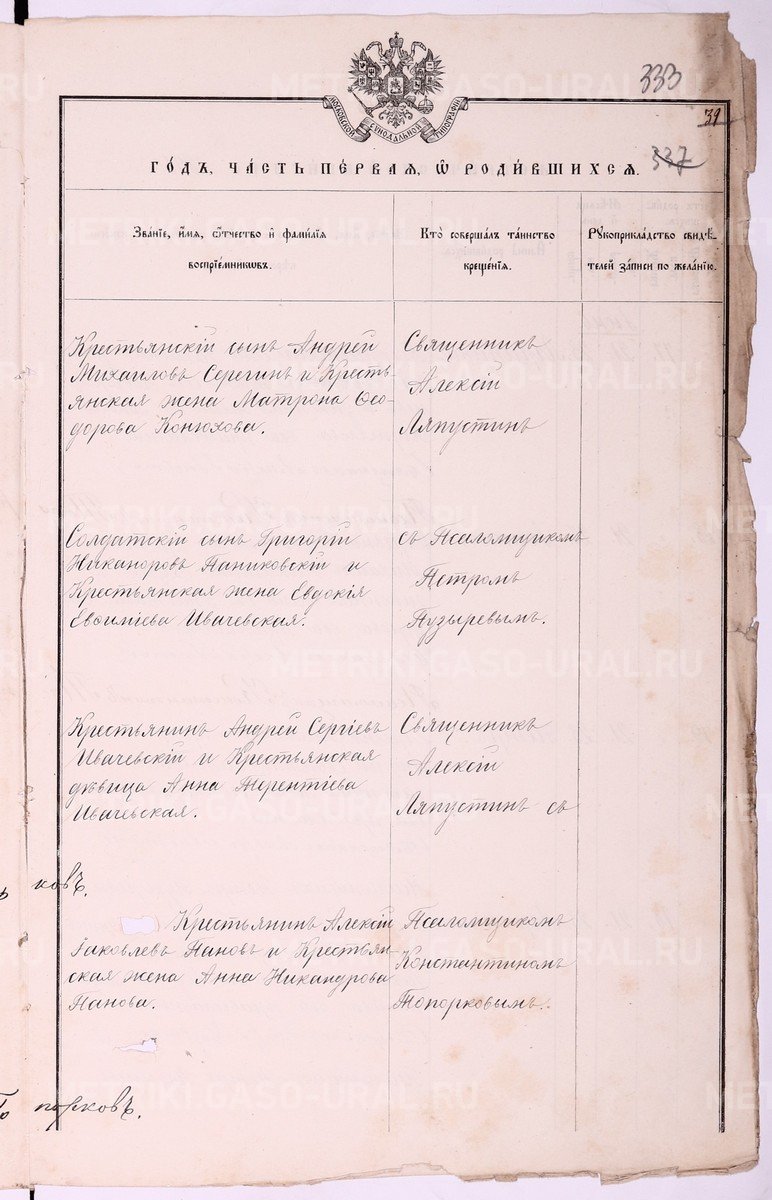 333
МОСКОВСКОЙ СѴНОДАЛЬНОЙ ТИПОГРАФІИ
39
337
ГО́ДЪ, ЧА́СТЬ ПЕ́РВАЯ, Ѡ҆ РОДИ́ВШИХСЯ.
Зва́нїе, и҆́мя, ѻ҆́тчество и҆ фами́лїя
воспрїе́мникѡвъ.
Кто̀ соверша́лъ та́инство
креще́нїѧ.
Рꙋкоприкла́дство свидѣ́-
телей за́писи по жела́нїю.
Крестьянскій сынъ Андрей
Михаиловъ Серегинъ и Кресть-
янская жена Матрона Ѳео-
дорова Конюхова.
Священникъ
Алексій
Ляпустинъ
Солдатскій сынъ Григорій
Никаноровъ Паниковскій и
Крестьянская жена Евдокія
Евѳиміева Ивачевская.
съ Псаломщикомъ
Петромъ
Пузыревымъ.
Крестьянинъ Андрей Сергіевъ
Ивачевскій и Крестьянская
дѣвица Анна Терентіева
Ивачевская.
Священникъ
Алексій
Ляпустинъ съ
ковъ.
Крестьянинъ Алексій
Іаковлевъ Пановъ и Крестьян-
ская жена Анна Никандрова
Панова.
Псаломщикомъ
Константиномъ
Топорковымъ.
порковъ.
METRIKI.GASO-URAL.RU